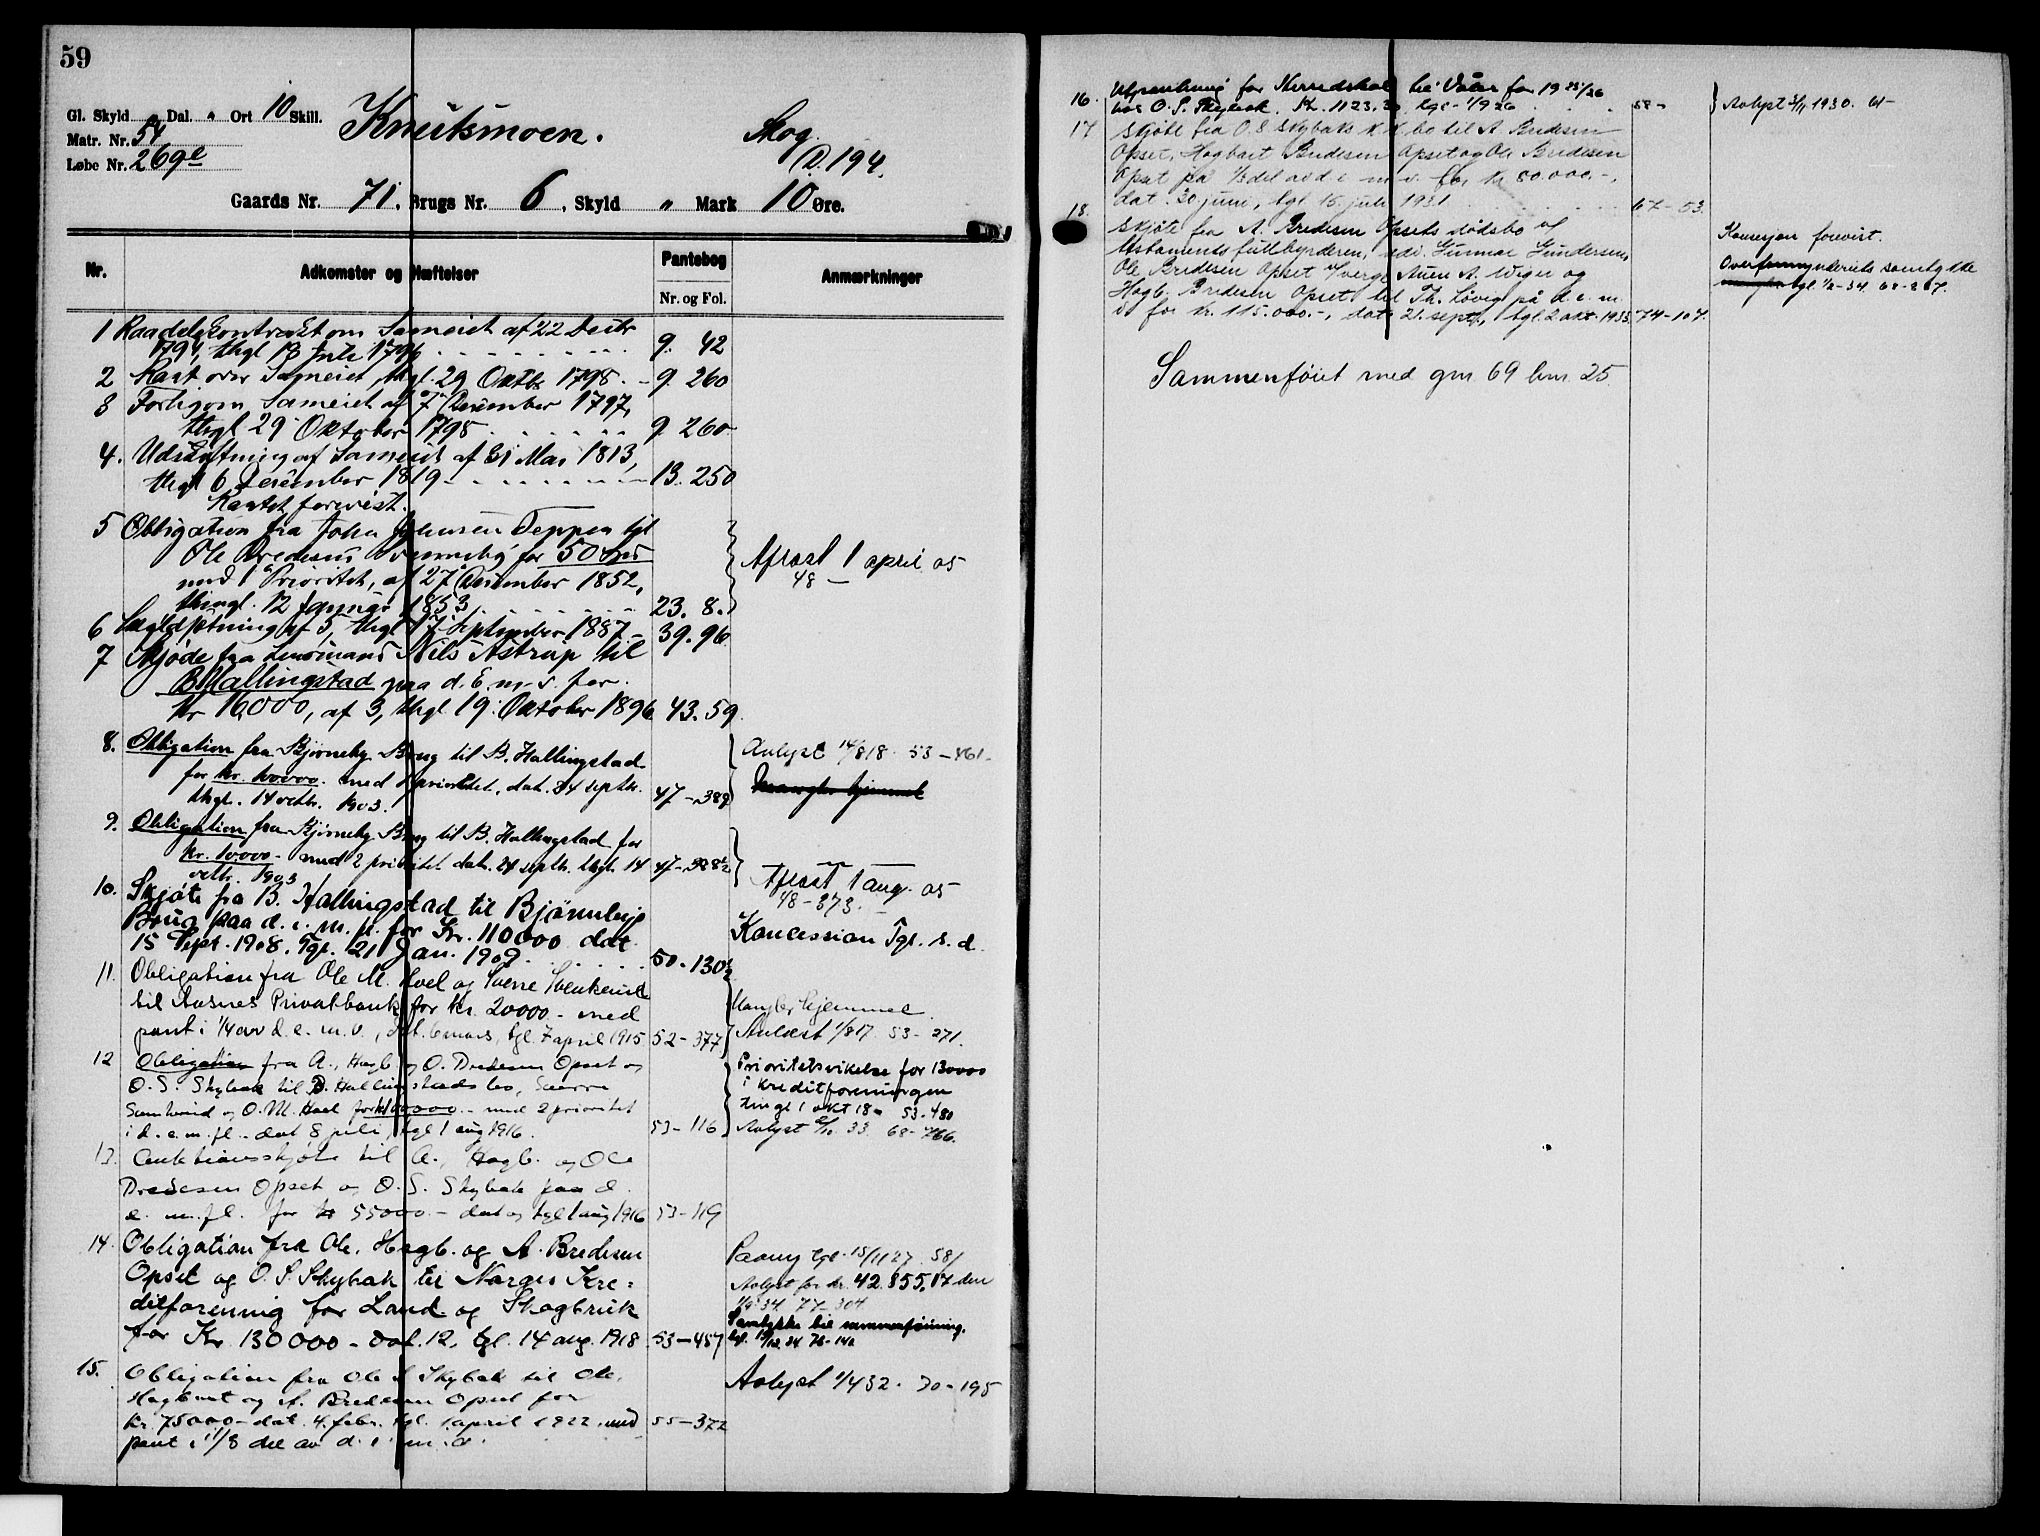 59
Gl. Skyld " Dal. " Ort 10 Skill.
Matr. Nr. 54
Løbe Nr. 269e
Knutsmoen.
Skog
D. 194.
Gaards Nr. 71, Brugs Nr. 6, Skyld " Mark 10 Øre.
Nr.
Adkomster og Hæftelser
Pantebog
Nr. og Fol.
Anmærkninger
1 Raadelskontrakt om Sameiet af 22 Decbr
1794, thgl 18 Juli 1796 9. 42
2 Kart over Sameiet, thgl. 29 Oktbr 1798. 9 260
3 Forlig om Sameiet af 7 December 1797,
thgl 29 Oktober 1798 9 260
4. Udskiftning af Sameiet af 31 Mai 1813,
thgl 6 December 1819 13. 250
Kartet forevist.
5 Obligation fra John Johnsen Teppen til
Ole Bredesen for 50
med 1 Prioritet, af 27 December 1852,
thingl. 12 Januar 1853 23. 8.
Aflæst 1 april 05
48 —
6 af 5, thgl 17 September 1887 39. 96
7 Skjøde fra Lensmand Nils Astrup til
B. Hallingstad paa d. E. m. v. for
Kr 16000, af 3, thgl 19 Oktober 1896 43. 59
8. Obligation fra Bjørneby Brug til B. Hallingstad
for kr. 100000. med 1 prioritet, dat. 24 septbr.
thgl. 14 octbr. 1903. 47-389
Avlyst 14/8 18. 53-461.
Mangler hjemmel
9. Obligation fra Bjørneby Brug til B. Hallingstad for
kr. 10000 - med 2 prioritet dat. 24 septbr. thgl. 14
octbr. 1903
Aflæst 1 aug. 05
48-373.
10. Skjøte fra B. Hallingstad til Bjørneby
Brug paa d. e. m. fl. for Kr. 110000 dat.
15 Sept. 1908. Tgl. 21 Jan. 1909. 50-130½
Koncession Tgl. s. d.
11. Obligation fra Ole M. Hoel og Sverre
til Aasnes Privatbank for kr. 20000 - med
pant i 1/4 av d. e. m. v., dat. 6 mars, tgl. 7 april 1915 52-377
Mangler hjemmel.
Avlæst 1/8 17. 53-271.
12 Obligation fra A., Hagb. og O. Bredesen Opset og
O. S. Skybak til B. Hallingstads bo, Sverre
og O. M. Hoel for kr 100000. - med 2 prioritet
i d. e. m. fl. - dat 8 juli, tgl 1 aug 1916. 53-116
Prioritetsvikelse for 130000
i kreditforeningen
tingl 1 okt 18. 53-480
Avlyst 33. 68-766.
13. Auktionsskjøte til A., Hagb. og Ole
Bredesen Opset og O. S. Skybak paa d.
e. m. fl. for kr 55000. - dat og tgl 1 aug 1916 53-119
14. Obligation fra Ole, Hagb. og A. Bredesen
Opset og O. S. Skybak til Norges Kre-
ditforening for Land og Skogbruk
for Kr. 130000 - dat. 12, tgl. 14 aug. 1918. 53-457
tgl. 15/11 27. 58/
Avlyst for kr. 42.855,17 den
1/9 34. 77-304
Samtykke til sammenføining.
15. Obligation fra Ole S Skybak til Ole,
Hagbart og A. Bredesen Opset for
kr. 75000 - dat. 4. febr. tgl. 1 april 1922. med
pant i 1/3 del av d. e. m. v. 55-372
Avlyst 1/4 32. 70-195
16. Utpantning for Herredskat til Vaaler for 1925/26
hos O. S. Skybak. Kr. 1123. tgl. 1/9 26 58-
Avlyst 1930. 61-
17 Skjøte fra O. S. Skybaks k.k.bo til A. Bredesen
Opset, Hagbart Bredesen Opset og Ole Bredesen
Opset på 1/3 del av d. e. m. v. for kr 80.000.-,
dat. 30 juni, tgl 15. juli 1931 67-53.
18. Skjøte fra A. Bredesen Opsets dødsbo v/
testamentsfullbyrderen, adv. Gunnar Gundersen,
Ole Bredesen Opset v/verge Auen A. Wiger og
Hagb. Bredesen Opset til Th. Løvig på d. e. m.
v for kr. 115.000.-, dat. 21. sept., tgl. 2 okt. 1933 74-107.
Konsesjon forevist.
Overformynderiets samtykke
mangler tgl. 1/2-34. 68-867.
Sammenføiet med gnr 69 bnr. 25.